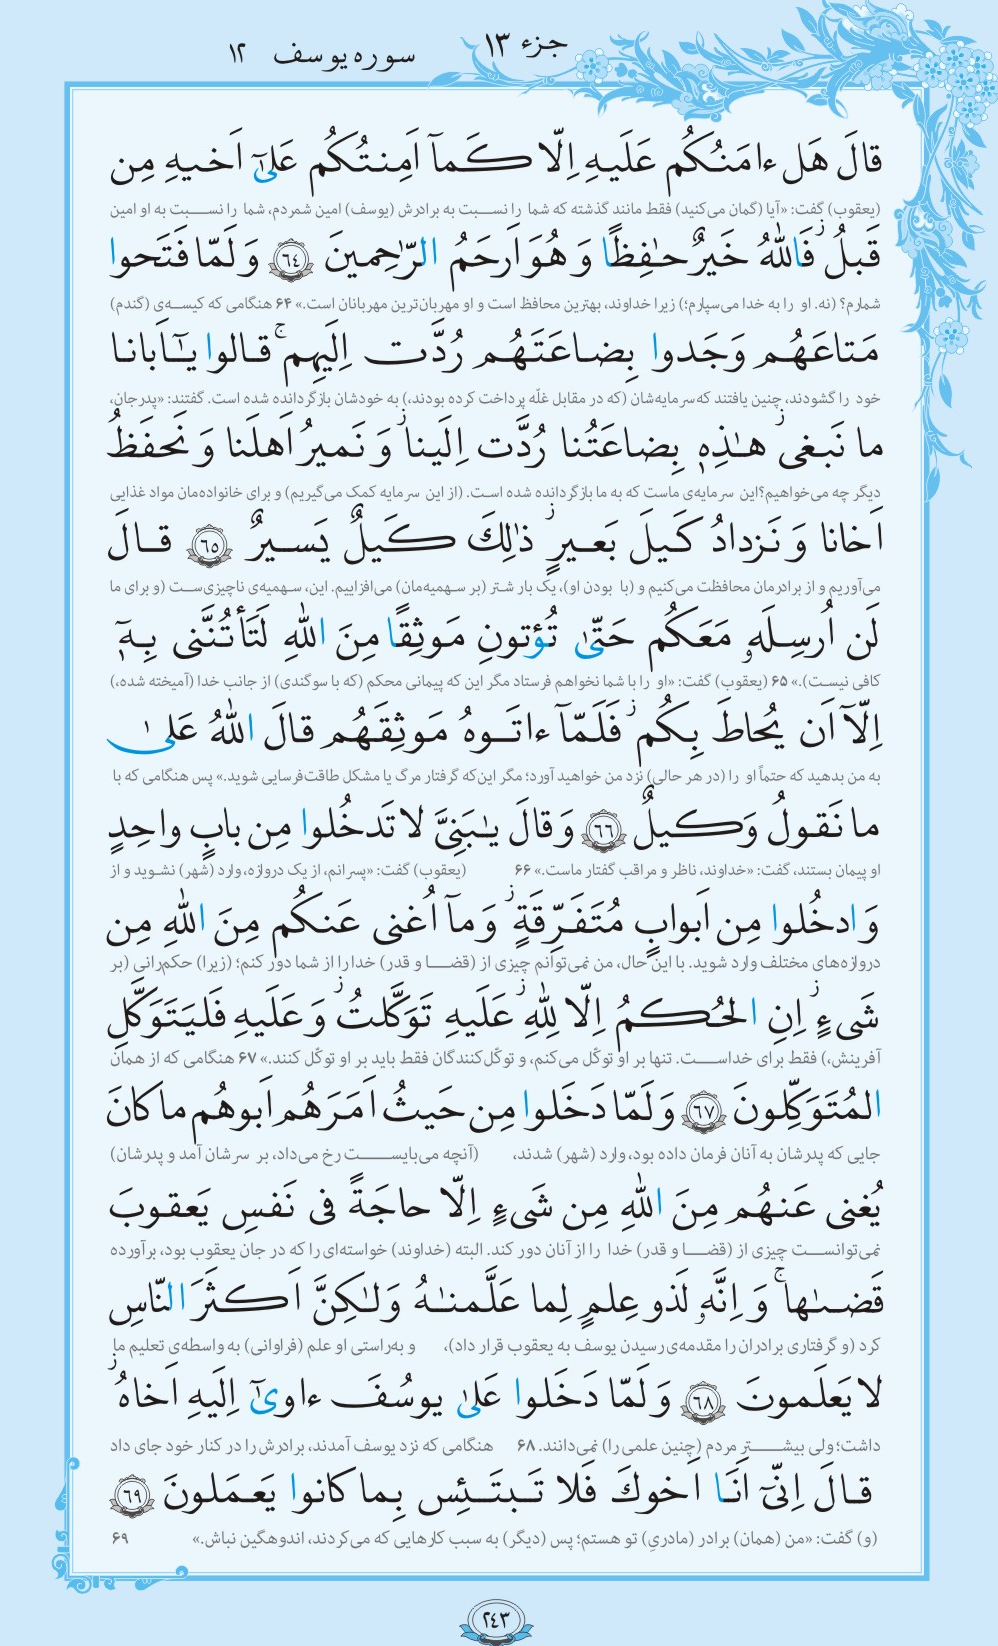 جزء ۱۳
سوره یوسف ۱۲
قالَ هَل ءامَنُكُم عَلَيهِ اِلّا كَمآ اَمِنتُكُم عَلىٰٓ اَخيهِ مِن
(یعقوب) گفت: «آیا (گمان می‌کنید) فقط مانند گذشته که شما را نسبت به برادرش (یوسف) امین شمردم، شما را نسبت به او امین
قَبلُ ۖ فَاللهُ خَيرٌ حـٰفِظًا وَ هُوَ اَرحَمُ الرّٰحِمينَ ﴿٦٤﴾ وَ لَمّا فَتَحوا
شمارم؟ (نه. او را به خدا می‌سپارم؛) زیرا خداوند، بهترین محافظ است و او مهربان‌ترین مهربانان است.» ۶۴ هنگامی که کیسه‌ی (گندم)
مَتاعَهُم وَجَدوا بِضاعَتَهُم رُدَّت اِلَيهِم ۚ قالوا يـٰٓاَبانا
خود را گشودند، چنین یافتند که سرمایه‌شان (که در مقابل غلّه پرداخت کرده بودند،) به خودشان بازگردانده شده است. گفتند: «پدرجان،
ما نَبغى ۖ هـٰذِهٖ بِضاعَتُنا رُدَّت اِلَينا ۖ وَ نَميرُ اَهلَنا وَ نَحفَظُ
دیگر چه می‌خواهیم؟این سرمایه‌ی ماست که به ما بازگردانده شده است. (از این سرمایه کمک می‌گیریم) و برای خانواده‌مان مواد غذایی
اَخانا وَ نَزدادُ كَيلَ بَعيرٍ ۖ ذٰلِكَ كَيلٌ يَسيرٌ ﴿٦٥﴾ قالَ
می‌آوریم و از برادرمان محافظت می‌کنیم و (با بودن او)، یک بار شتر (بر سهمیه‌مان) می‌افزاییم. این، سهمیه‌ی ناچیزی‌ست (و برای ما
لَن اُرسِلَهٗ مَعَكُم حَتّىٰ تُؤتونِ مَوثِقًا مِنَ اللهِ لَتَأتُنَّنى بِهٖٓ
کافی نیست).» ۶۵ (یعقوب) گفت: «او را با شما نخواهم فرستاد مگر این که پیمانی محکم (که با سوگندی) از جانب خدا (آمیخته شده،)
اِلّآ اَن يُحاطَ بِكُم ۖ فَلَمّآ ءاتَوهُ مَوثِقَهُم قالَ اللهُ عَلىٰ
به من بدهید که حتماً او را (در هر حالی) نزد من خواهید آورد؛ مگر این‌که گرفتار مرگ یا مشکل طاقت‌فرسایی شوید.» پس هنگامی که با
ما نَقولُ وَكيلٌ ﴿٦٦﴾ وَ قالَ يـٰبَنِىَّ لا تَدخُلوا مِن بابٍ واحِدٍ
او پیمان بستند، گفت: «خداوند، ناظر و مراقب گفتار ماست.» ۶۶ (یعقوب) گفت: «پسرانم، از یک دروازه، وارد (شهر) نشوید و از
وَ ادخُلوا مِن اَبوابٍ مُتَفَرِّقَةٍ ۖ وَ مآ اُغنى عَنكُم مِنَ اللهِ مِن
دروازه‌های مختلف وارد شوید. با این حال، من نمی‌توانم چیزی از (قضا و قدر) خدا را از شما دور کنم؛ (زیرا) حکم‌رانی (بر
شَىءٍ ۖ اِنِ الحُكمُ اِلّا لِلّٰهِ ۖ عَلَيهِ تَوَكَّلتُ ۖ وَ عَلَيهِ فَليَتَوَكَّلِ
آفرینش،) فقط برای خداست. تنها بر او توکّل می‌کنم، و توکّل‌کنندگان فقط باید بر او توکّل کنند.» ۶۷ هنگامی که از همان
المُتَوَكِّلونَ ﴿٦٧﴾ وَ لَمّا دَخَلوا مِن حَيثُ اَمَرَهُم اَبوهُم ما كانَ
جایی که پدرشان به آنان فرمان داده بود، وارد (شهر) شدند، (آنچه می‌بایست رخ می‌داد، بر سرشان آمد و پدرشان)
يُغنى عَنهُم مِنَ اللهِ مِن شَىءٍ اِلّا حاجَةً فى نَفسِ يَعقوبَ
نمی‌توانست چیزی از (قضا و قدر) خدا را از آنان دور کند. البته (خداوند) خواسته‌ای را که در جان یعقوب بود، برآورده
قَضـٰىها ۚ وَ اِنَّهٗ لَذو عِلمٍ لِما عَلَّمنـٰهُ وَلـٰكِنَّ اَكثَرَ النّاسِ
کرد (و گرفتاری برادران را مقدمه‌ی رسیدن یوسف به یعقوب قرار داد)، و به‌راستی او علم (فراوانی) به واسطه‌ی تعلیم ما
لا يَعلَمونَ ﴿٦٨﴾ وَ لَمّا دَخَلوا عَلىٰ يوسُفَ ءاوىٰٓ اِلَيهِ اَخاهُ ۖ
داشت؛ ولی بیشتر مردم (چنین علمی را) نمی‌دانند. ۶۸ هنگامی که نزد یوسف آمدند، برادرش را در کنار خود جای داد
قالَ اِنّىٓ اَنَا اَخوكَ فَلا تَبتَئِس بِما كانوا يَعمَلونَ ﴿٦٩﴾
(و) گفت: «من (همان) برادر (مادریِ) تو هستم؛ پس (دیگر) به سبب کارهایی که می‌کردند، اندوهگین نباش.» ۶۹
۲۴۳